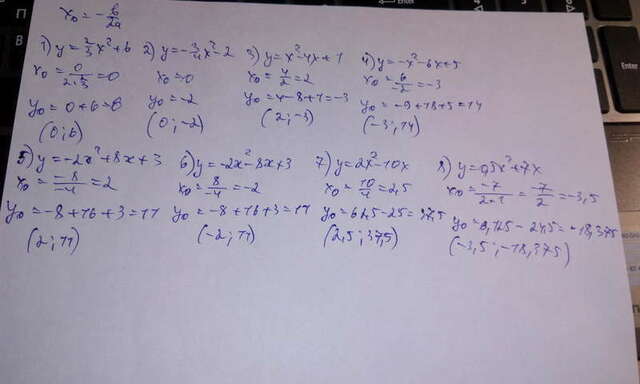 x₀ = -b/2a
1) y = 2/3 x² + 6
x₀ = 0/(2·3) = 0
y₀ = 0 + 6 = 6
(0; 6)
2) y = -3/4 x² - 2
x₀ = 0
y₀ = -2
(0; -2)
3) y = x² - 4x + 1
x₀ = 4/2 = 2
y₀ = 4 - 8 + 1 = -3
(2; -3)
4) y = -x² - 6x + 5
x₀ = 6/-2 = -3
y₀ = -9 + 18 + 5 = 14
(-3; 14)
5) y = -2x² + 8x + 3
x₀ = -8/-4 = 2
y₀ = -8 + 16 + 3 = 11
(2; 11)
6) y = -2x² - 8x + 3
x₀ = 8/-4 = -2
y₀ = -8 + 16 + 3 = 11
(-2; 11)
7) y = 2x² - 10x
x₀ = 10/4 = 2,5
y₀ = 62,5 - 25 = 37,5
(2,5; 37,5)
8) y = 0,5x² + 7x
x₀ = -7/(2·1) = -7/2 = -3,5
y₀ = 6,125 - 24,5 = -18,375
(-3,5; -18,375)
Enter